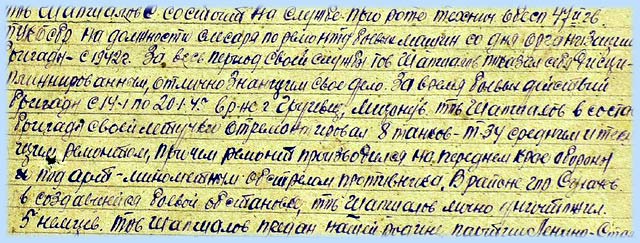 тв Шапшалов состоит на службе при роте техник
на должности слесаря по ремонту боевых машин со дня организации
бригады - с 1942г. За весь период своей службы тов Шапшалов показал себя дисци-
плинированным, отлично знающим свое дело. За время боевых действий
бригады с 19-1 по 20-1 в р-не г тв Шапшалов в составе
бригады своей летучки отремонтировал 8 танков - Т-34 средним и теку-
щим ремонтом, причем ремонт производился на переднем крае обороны
под арт-минометным обстрелом противника. В районе гор
в создавшейся боевой обстановке, тв Шапшалов лично уничтожил
5 немцев. тов Шапшалов предан нашей родине партии Ленина-Ста